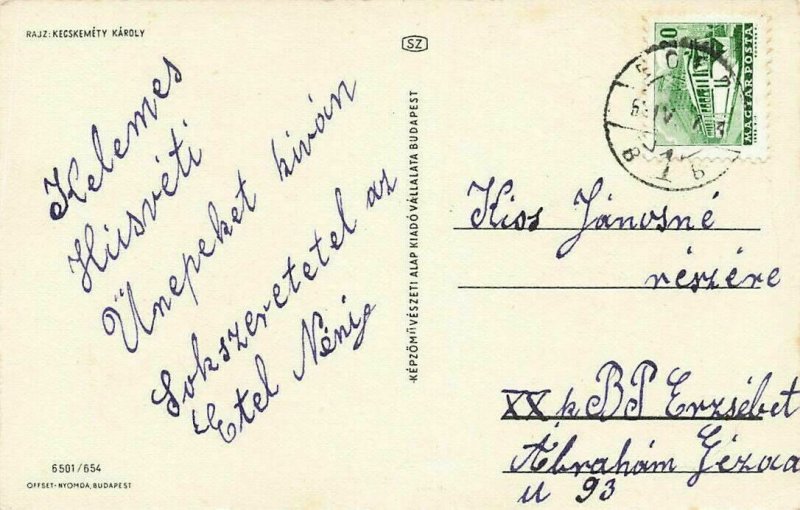 RAJZ: KECSKEMÉTY KÁROLY
Kelemes
Húsvéti
Ünepeket kíván
Sokszeretetel az
Etel Nénig
6501/654
OFFSET-NYOMDA, BUDAPEST
SZ
KÉPZŐMŰVÉSZETI ALAP KIADÓVÁLLALATA BUDAPEST
20
MAGYAR POSTA
Kiss Jánosné
részére
XX k BP Erzsébet
Ábrahám Géza
u 93